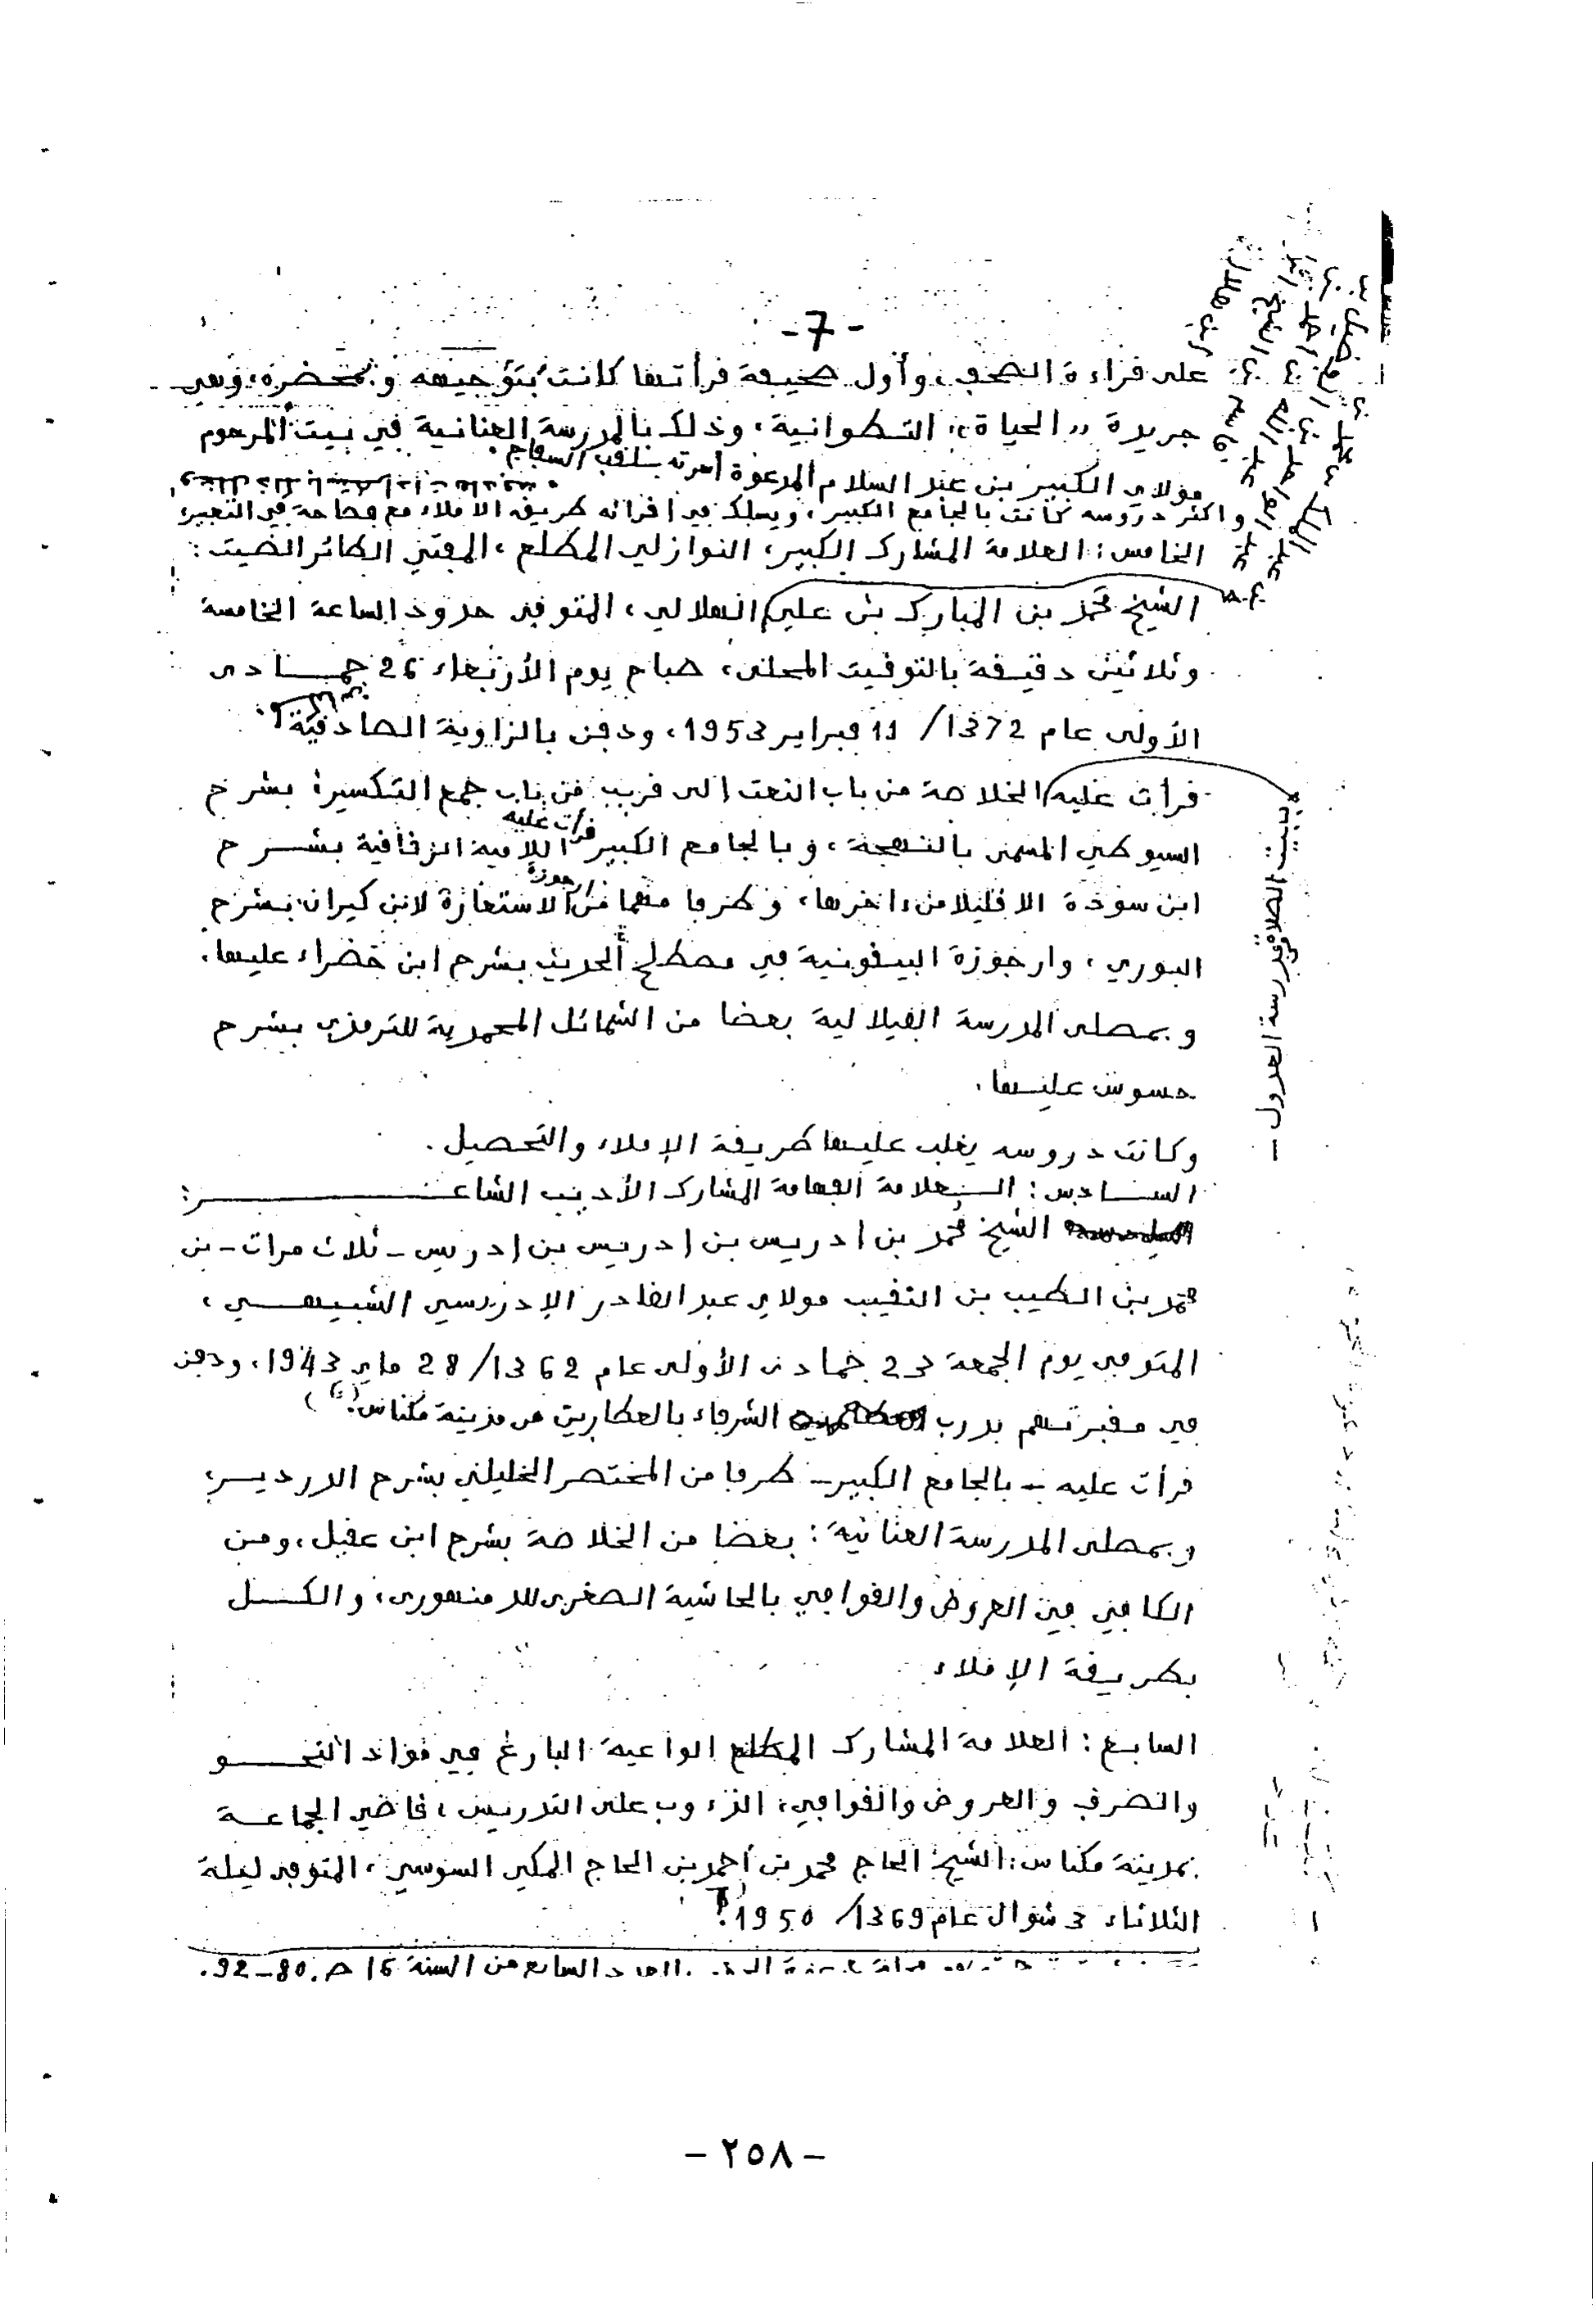 -7-
على قراءة الصحف، وأول صحيفة قرأتها كانت بتوجيهه وبمحضره، وهي
جريدة «الحياة» التطوانية، وذلك بالمدرسة العنانية في بيت المرحوم
مولاي الكبير بن عبد السلام المدعوة أسرته بلقب السفاج.
واكثر دروسه كانت بالجامع الكبير، ويسلك في اقرائه طريق الاملاء مع فصاحة في التعبير
الخامس: العلامة المشارك الكبير، النوازلي المطلع، المفتي الطائر الصيت:
الشيخ محمد بن المبارك بن علي الهلالي، المتوفى حدود الساعة الخامسة
وثلاثين دقيقة بالتوقيت المحلي، صباح يوم الأربعاء 26 جمادى
الأولى عام 1372/ 11 فبراير 1953، ودفن بالزاوية الصادقية
قرأت عليه الخلاصة من باب النعت إلى قريب من باب جمع التكسير: بشرح
ببيت الصلاة بمدرسة العدول –
السيوطي المسمى بالبهجة، وبالجامع الكبير قرأت عليه اللامية الزقاقية بشرح
ابن سودة الا قليلا من اخرها، وطرفا مهما من ارجوزة الاستعارة لابن كيران بشرح
البوري، وارجوزة البيقونية في مصطلح الحديث بشرح ابن خضراء عليها.
وبمصلى المدرسة الفيلالية بعضا من الشمائل المحمدية للترمذي بشرح
جسوس عليها.
وكانت دروسه يغلب عليها طريقة الإملاء والتحصيل.
السادس: العلامة الفهامة المشارك الأديب الشاعر:
الشيخ محمد بن إدريس بن إدريس بن إدريس – ثلاث مرات – بن
محمد بن الطيب بن النقيب مولاي عبد القادر الإدريسي الشبيهي،
المتوفى يوم الجمعة 23 جمادى الأولى عام 1362/ 28 ماي 1943، ودفن
في مقبرتهم بدرب الشرفاء بالعطارين من مدينة مكناس.
قرأت عليه – بالجامع الكبير – طرفا من المختصر الخليلي بشرح الدردير،
وبمصلى المدرسة العنانية: بعضا من الخلاصة بشرح ابن عقيل، ومن
الكافي في العروض والقوافي بالحاشية الصغرى للدمنهوري، والكل
بطريقة الإملاء
السابع: العلامة المشارك المطلع الواعية البارع في مواد النحو
والصرف والعروض والقوافي، الدءوب على التدريس، قاضي الجماعة
بمدينة مكناس: الشيخ الحاج محمد بن أحمد بن الحاج المكي السوسي، المتوفى ليلة
الثلاثاء 3 شوال عام 1369/ 1950.
العدد السابع من السنة 16 ص. 80–92.
– ٢٥٨ –